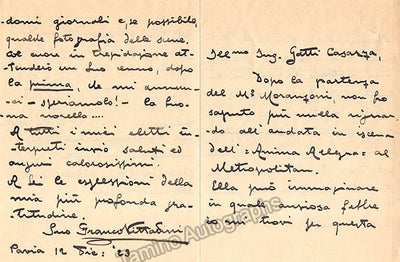 Ill.mo Ing. Gatti Casazza,
Dopo la partenza
del M.° Moranzoni, non ho
saputo più nulla riguar-
do all'andata in iscena
dell' "Anima Allegra" al
Metropolitan.
Ella può immaginare
in quale ansiosa febbre
io mi trovi per questa
-domi giornali e, se possibile,
qualche fotografia delle scene.
Col cuore in trepidazione at-
tenderò un Suo cenno, dopo
la prima, che mi annun-
ci - speriamolo! - la buo-
na novella....
A tutti i miei eletti in-
terpreti invio saluti ed
auguri calorosissimi.
A Lei le espressioni della
mia più profonda gra-
titudine.
Suo Franco Vittadini
Pavia 12 Dic: '23
Tamino Autographs